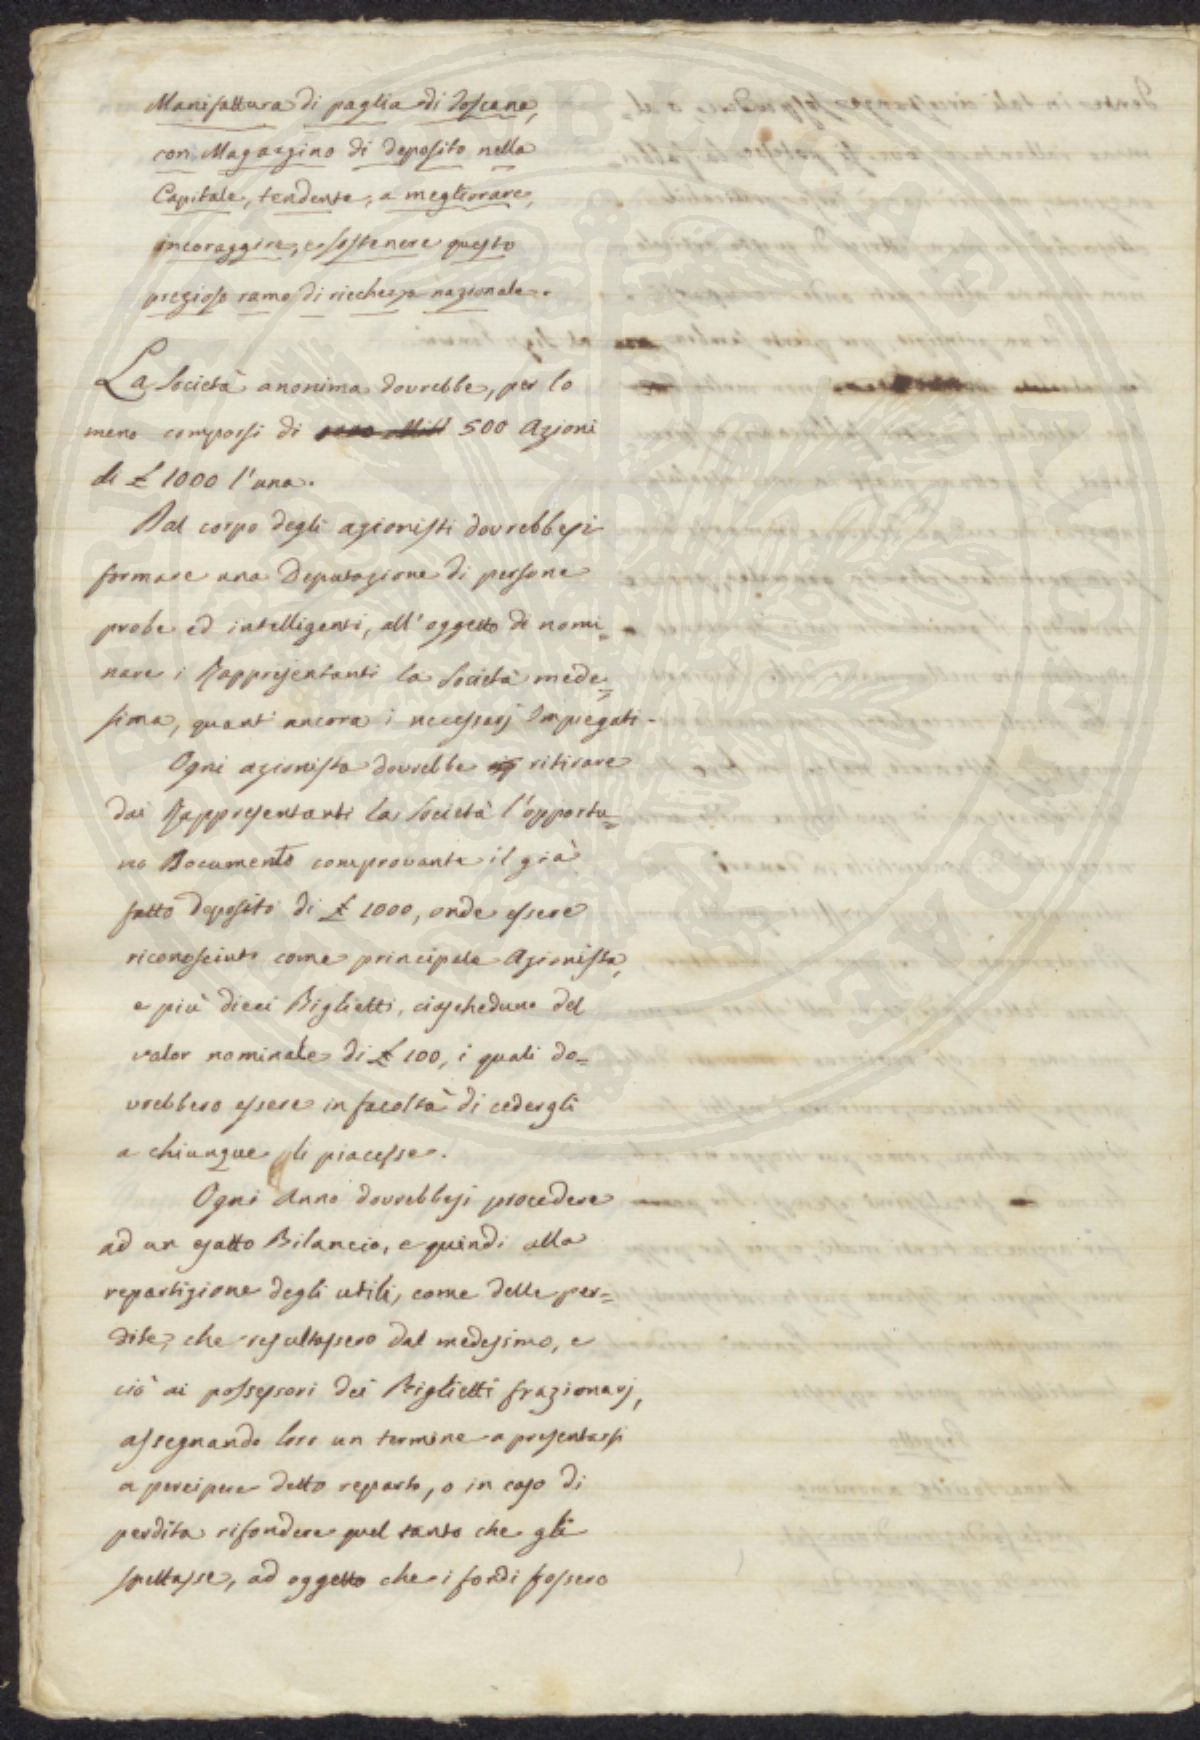 Manifattura di paglia di Toscana,
con Magazzino di deposito nella
Capitale, tendente, a megliorare,
incoraggire, e sostenere questo
prezioso ramo di ricchezza nazionale.
La Società anonima dovrebbe, per lo
meno comporsi di 500 Azioni
di £ 1000 l'una.
Dal corpo degli azionisti dovrebbesi
formare una Deputazione di persone
probe ed intelligenti, all'oggetto di nomi=
nare i Rappresentanti la Società mede=
sima, quanti ancora i necessarj Impiegati.
Ogni azionista dovrebbe ritirare
dai Rappresentanti la Società l'opportu=
no Documento comprovante il già
fatto deposito di £ 1000, onde essere
riconosciuto come principale Azionista,
e più dieci Biglietti, ciascheduno del
valor nominale di £ 100, i quali do=
vrebbero essere in facoltà di cedergli
a chiunque gli piacesse.
Ogni Anno dovrebbesi procedere
ad un esatto Bilancio, e quindi alla
repartizione degli utili, come delle per=
dite, che resultassero dal medesimo, e
ciò ai possessori dei Biglietti frazionarj,
assegnando loro un termine a presentarsi
a percipere detto reparto, o in caso di
perdita rifondere quel tanto che gli
spettasse, ad oggetto che i fondi fossero